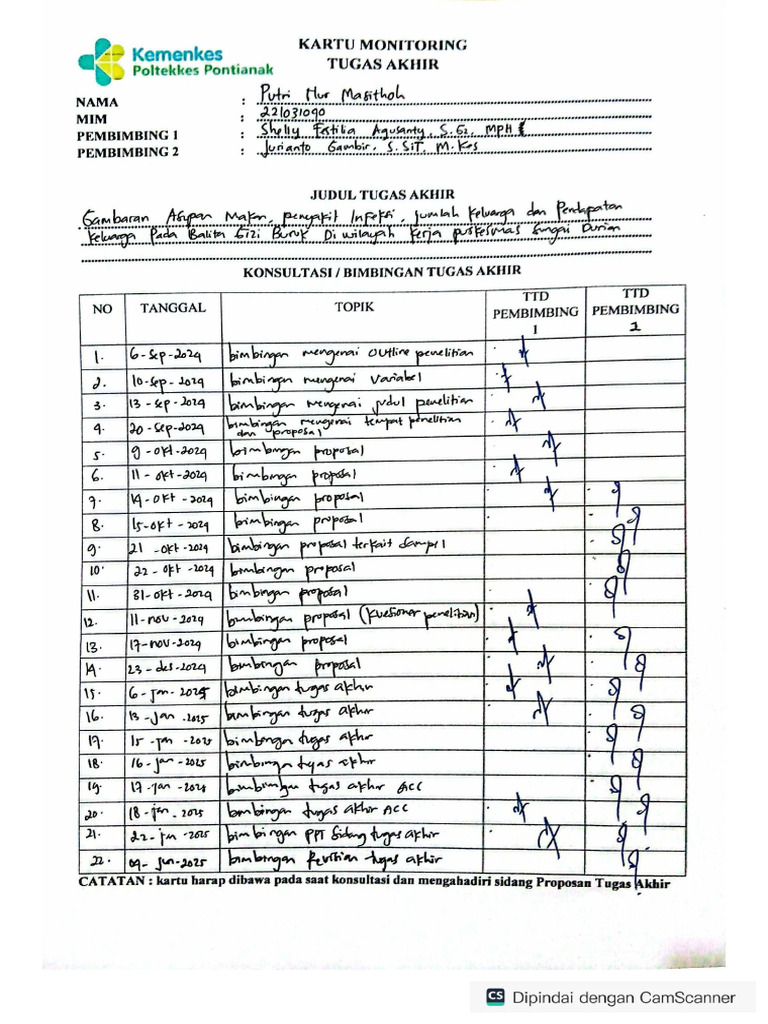 Kemenkes
Poltekkes Pontianak
KARTU MONITORING
TUGAS AKHIR
NAMA : Putri Nur Masithoh
MIM : 221031090
PEMBIMBING 1 : Shelly Festilia Agusanty, S.Gz, MPH
PEMBIMBING 2 : Jurianto Gambir, S.SiT, M.Kes
JUDUL TUGAS AKHIR
Gambaran Asupan Makan, Penyakit Infeksi, Jumlah Keluarga dan Pendapatan
Keluarga Pada Balita Gizi Buruk Di wilayah kerja puskesmas Sungai Durian
KONSULTASI / BIMBINGAN TUGAS AKHIR
NO TANGGAL TOPIK TTD PEMBIMBING 1 TTD PEMBIMBING 2
1. 6-Sep-2024 bimbingan mengenai Outline penelitian
2. 10-Sep-2024 bimbingan mengenai Variabel
3. 13-Sep-2024 bimbingan mengenai judul penelitian
4. 20-Sep-2024 bimbingan mengenai tempat penelitian dan proposal
5. 9-okt-2024 bimbingan proposal
6. 11-okt-2024 bimbingan proposal
7. 14-okt-2024 bimbingan proposal
8. 15-okt-2024 bimbingan proposal
9. 21-okt-2024 bimbingan proposal terkait sampel
10. 22-okt-2024 bimbingan proposal
11. 31-okt-2024 bimbingan proposal
12. 11-nov-2024 bimbingan proposal (kuesioner penelitian)
13. 17-nov-2024 bimbingan proposal
14. 23-des-2024 bimbingan proposal
15. 6-jan-2025 bimbingan tugas akhir
16. 13-jan-2025 bimbingan tugas akhir
17. 15-jan-2025 bimbingan tugas akhir
18. 16-jan-2025 bimbingan tugas akhir
19. 17-jan-2025 bimbingan tugas akhir ACC
20. 18-jan-2025 bimbingan tugas akhir ACC
21. 22-jan-2025 bimbingan PPT Sidang tugas akhir
22. 09-jun-2025 bimbingan Revisian tugas akhir
CATATAN : kartu harap dibawa pada saat konsultasi dan mengahadiri sidang Proposan Tugas Akhir
CS Dipindai dengan CamScanner